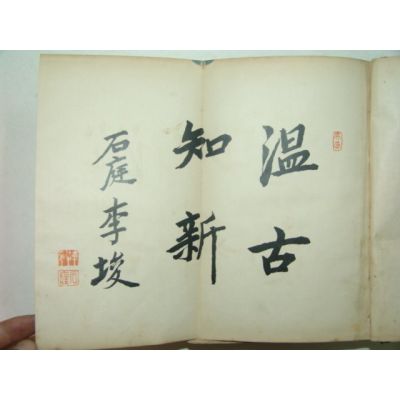 温古
知新
石庭李埈